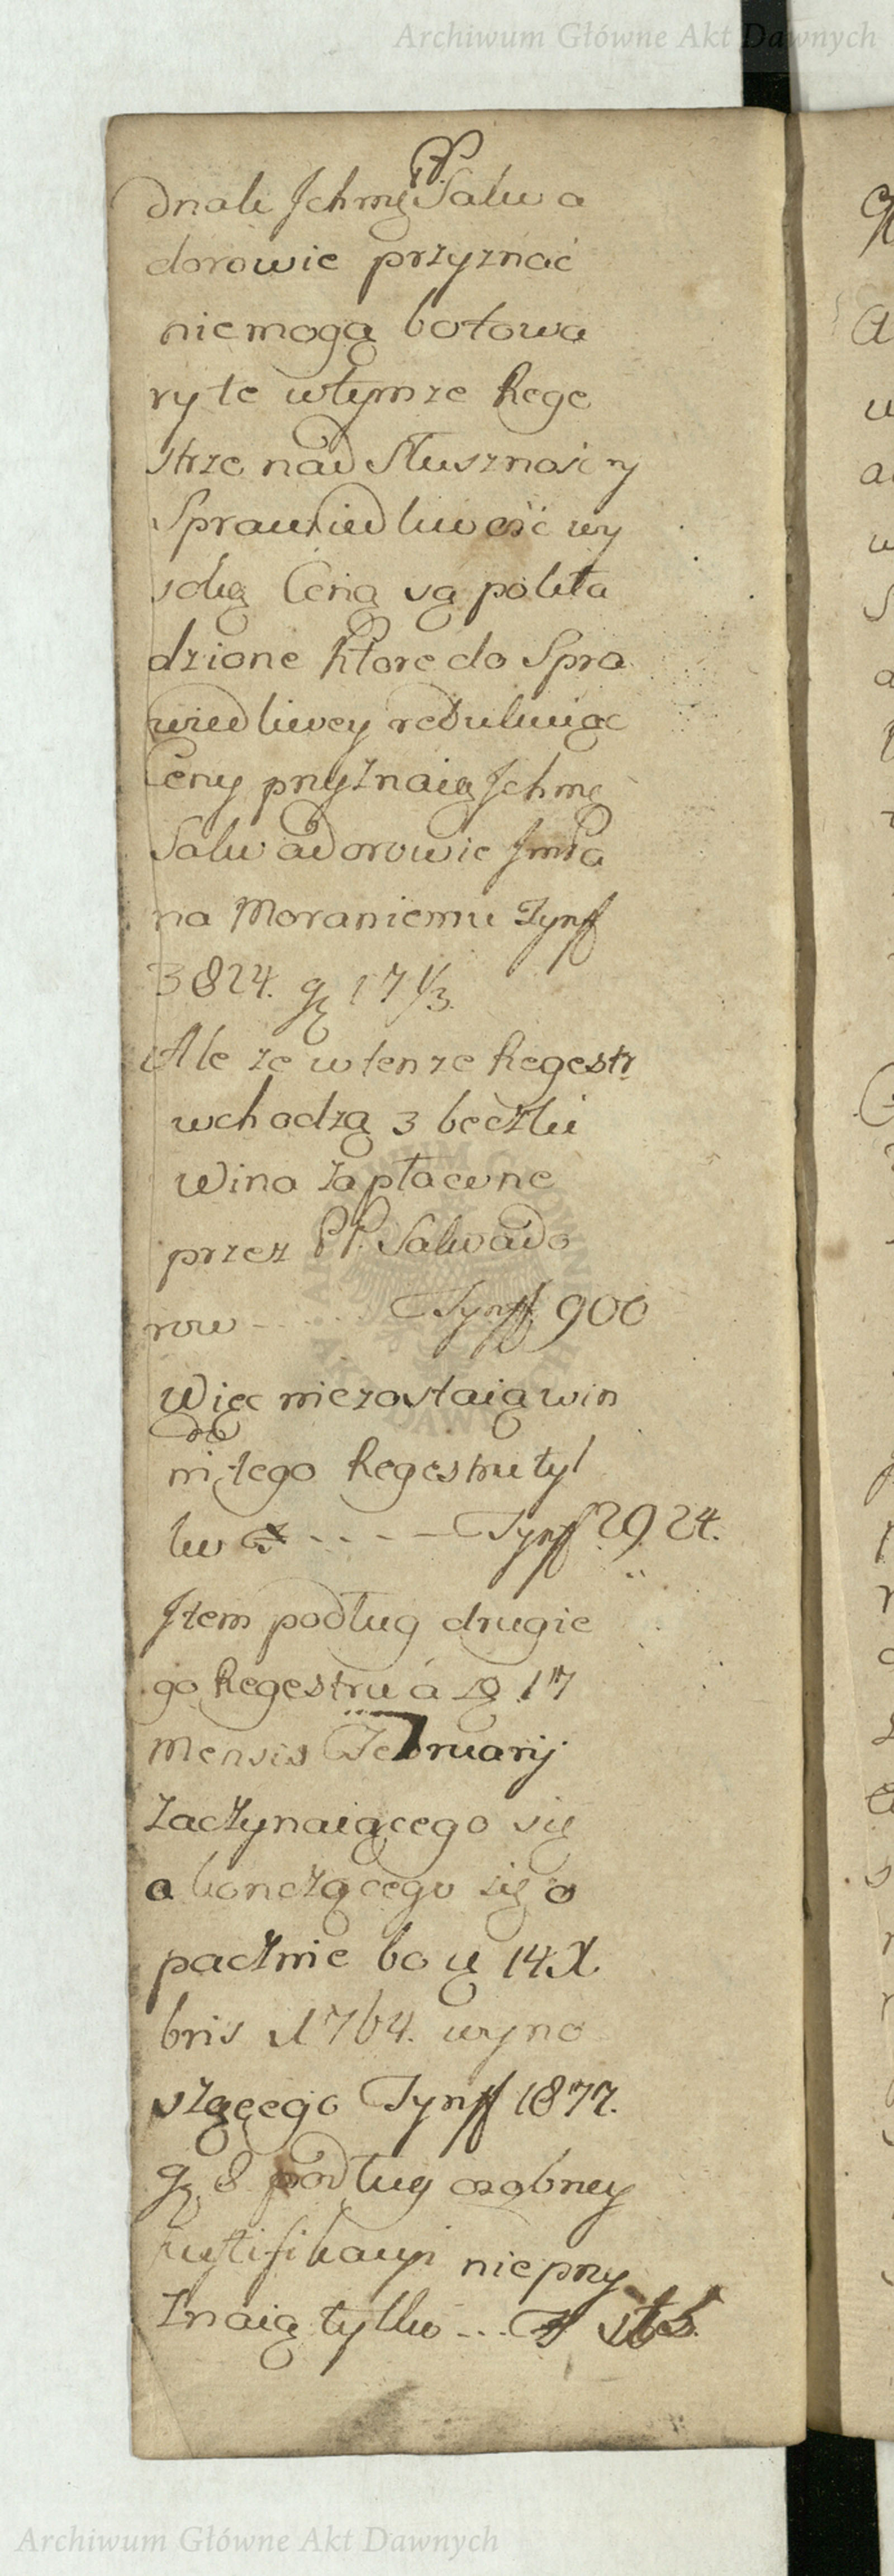 Archiwum Główne Akt Dawnych
PP.
dnak Jchmę Salwa
dorowie przyznać
niemogą botowa
ry te wtymze Rege
strze nad Słusznosc y
Sprawiedliwość wy
soką Ceną są pokła
dzione ktore do Spra
wiedliwey redukuiąc
Ceny przyznaią Jchmę
Salwadorowie Jmśa
na Moraniemu Tynff
3824. gę 17 1/3.
Ale ze wtenze Regestr
wchodzą 3 beczki
Wina zapłacone
przez PP. Salwado
row - - - - - Tynff 900
Więc niezostaią win
do
ni tego Regestru tyl
ko - - - - Tynff 2924.
Jtem podług drugie
go Regestru á 17
Mensis February
zaczynaiącego się
a konczącego się o
pacznie bo 14 X
bris 1764. wyno
szącego Tynff 1877.
gę 8 podług osobney
justifikacyi nieprzy
znaią tylko - - -
Archiwum Główne Akt Dawnych